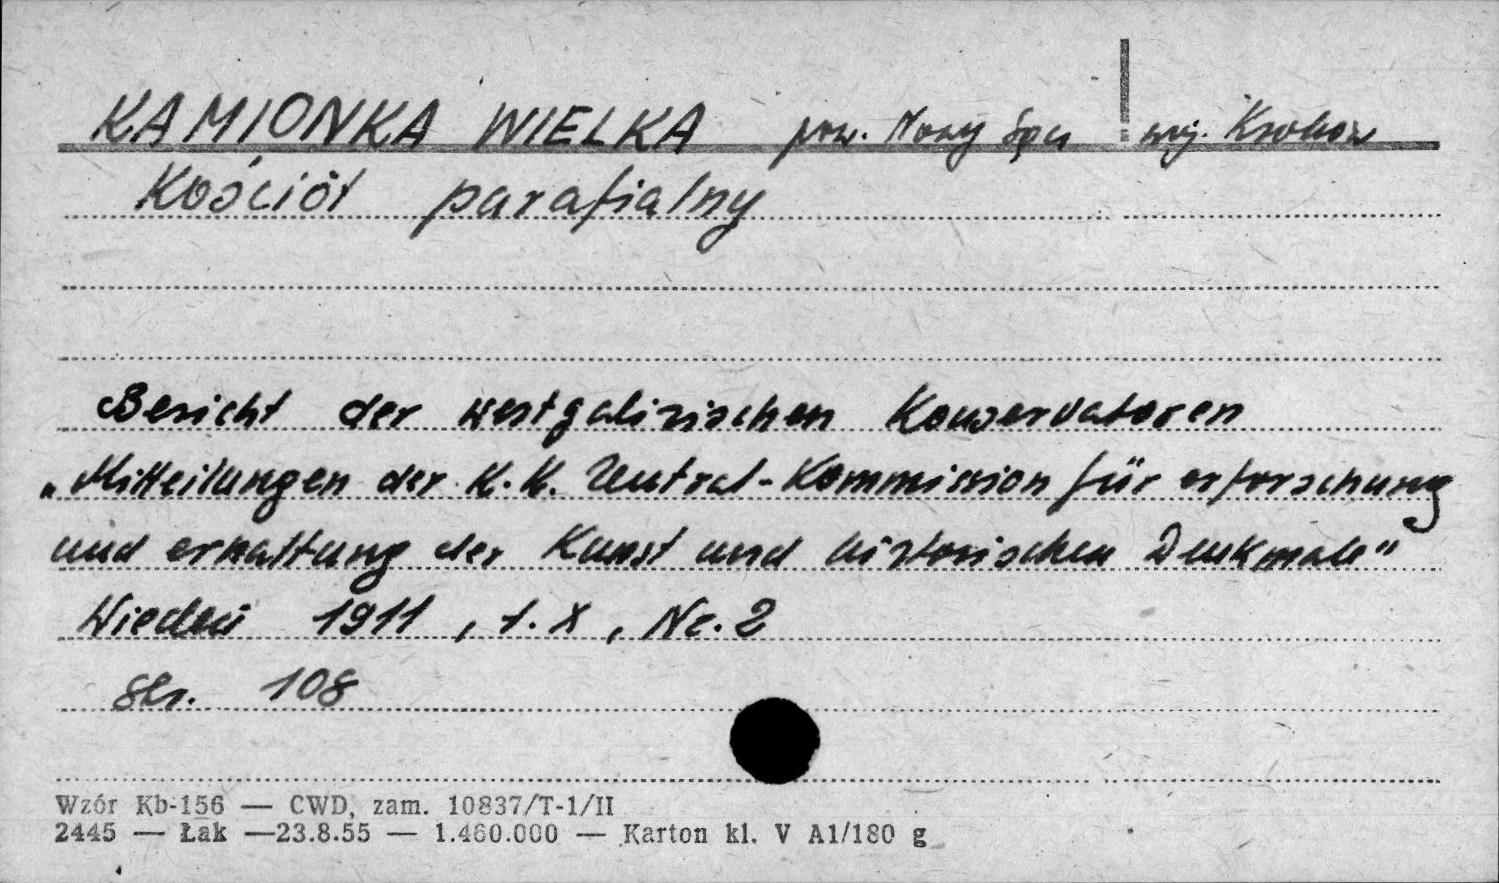 KAMIONKA WIELKA pow. Nowy Sącz woj. Kraków
Kościół parafialny
Bericht der westgalizischen Konservatoren
„Mitteilungen der K.K. Zentral-Kommission für erforschung
und erhaltung der Kunst und historischen Denkmale"
Wiedeń 1911, t. X, Nr. 2
str. 108
Wzór Kb-156 — CWD, zam. 10837/T-1/II
2445 — Łak —23.8.55 — 1.460.000 — Karton kl. V A1/180 g